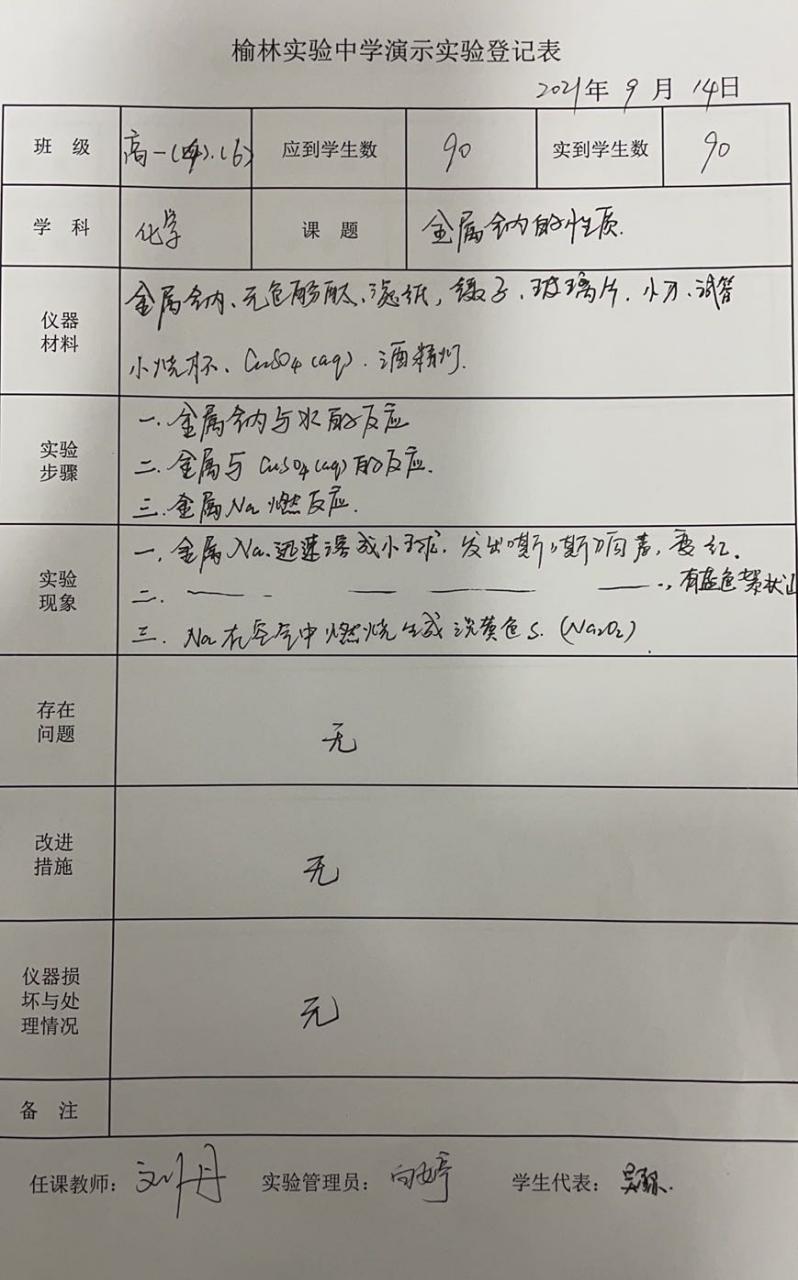 榆林实验中学演示实验登记表
2021年 9 月 14日
班 级 高一(4).(6) 应到学生数 90 实到学生数 90
学 科 化学 课 题 金属钠的性质.
仪器材料 金属钠、无色酚酞、滤纸, 镊子、玻璃片. 小刀、试管
小烧杯、CuSO4(aq). 酒精灯.
实验步骤 一. 金属钠与水的反应
二. 金属与CuSO4(aq)的反应.
三. 金属Na燃反应.
实验现象 一, 金属Na.迅速溶成小球. 发出嘶嘶响声, 变红.
二. — - — — —., 有蓝色絮状
三. Na在空气中燃烧生成淡黄色S. (Na2O2).
存在问题 无
改进措施 无
仪器损坏与处理情况 无
备 注
任课教师: 刘丹 实验管理员: 向婷 学生代表: 吴